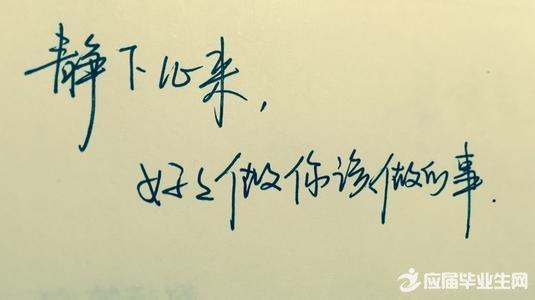 静下心来,
好々做你该做的事.
应届毕业生网